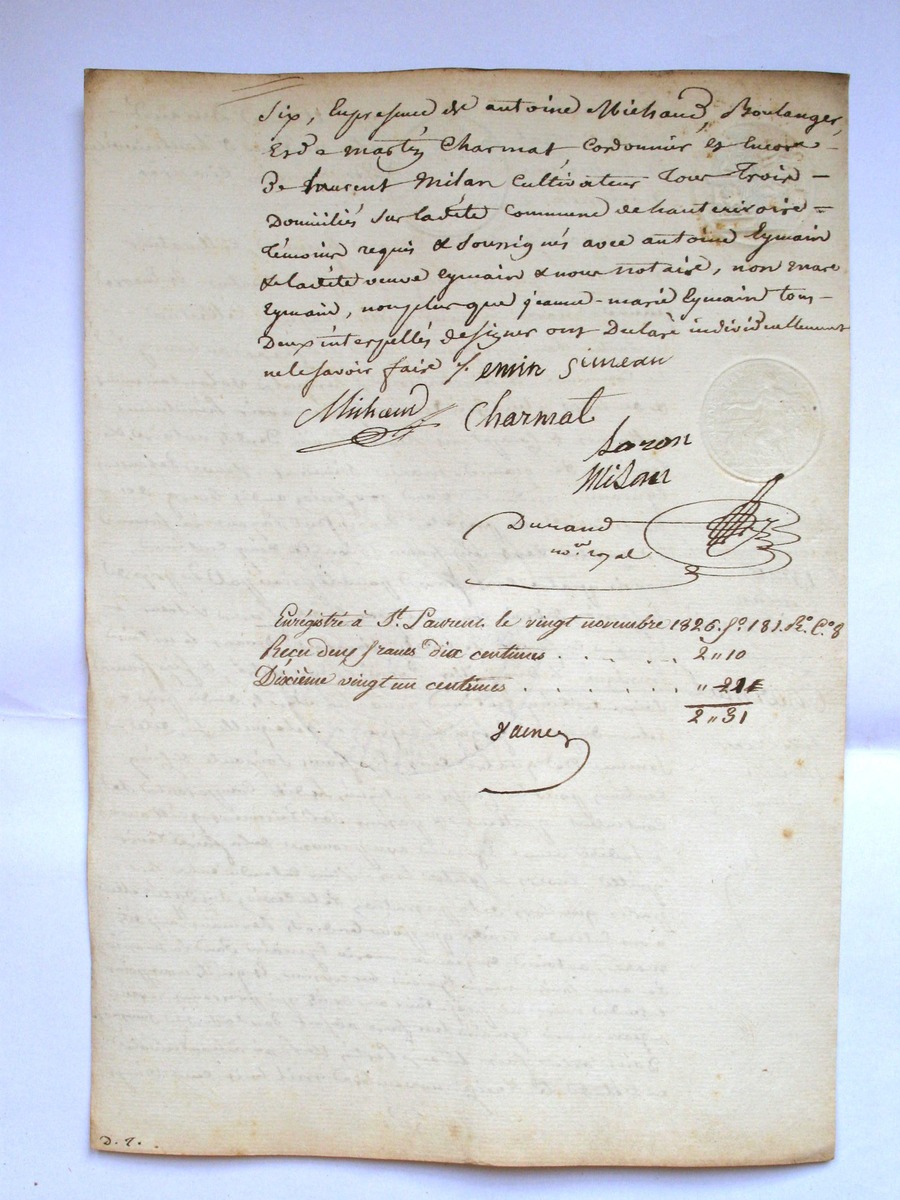 Six, En presence de antoine Michaud, Boulanger,
Et de martin Charmat Cordonnier et Encore
De Laurent Milan Cultivateur tous Trois
Domiciliés sur ladite Commune de hauterivoire
témoins requis & soussignés avec antoine Eymain
& ladite veuve Eymain & nous notaire, non marc
Eymain, non plus que jeanne-marie Eymain tous
Deux interpellés de signer ont Declaré individuellement
ne le savoir faire /. emin
Michaud Charmat
Milan
Durand
nore royal
Enrégistré à St. Laurent le vingt novembre 1826. fo. 181. Ro. Co. 8
Reçu deux francs dix centimes . . . . . 2,,10
Dixième vingt un centimes . . . . . . . ,, 21
2,,31
D. 7.